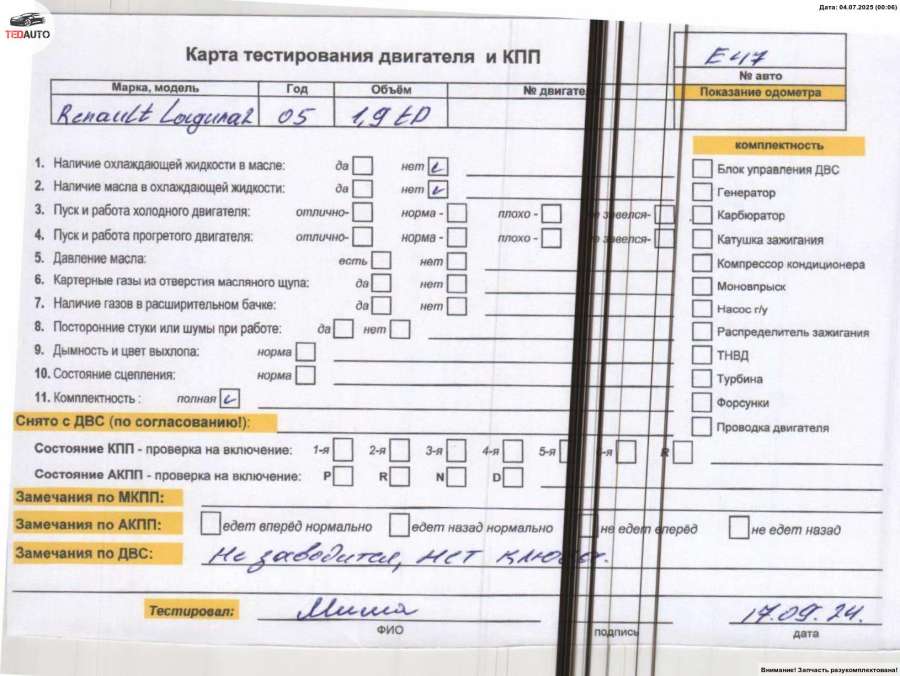 Дата: 04.07.2025 (00:06)
TEDAUTO
Карта тестирования двигателя и КПП
E47
№ авто
Марка, модель Год Объём № двигател Показание одометра
Renault Laguna2 05 1,9 td
комплектность
1. Наличие охлаждающей жидкости в масле: да нет
2. Наличие масла в охлаждающей жидкости: да нет
3. Пуск и работа холодного двигателя: отлично- норма - плохо - не завелся-
4. Пуск и работа прогретого двигателя: отлично- норма - плохо - не завелся-
5. Давление масла: есть нет
6. Картерные газы из отверстия масляного щупа: да нет
7. Наличие газов в расширительном бачке: да нет
8. Посторонние стуки или шумы при работе: да нет
9. Дымность и цвет выхлопа: норма
10. Состояние сцепления: норма
11. Комплектность : полная
Блок управления ДВС
Генератор
Карбюратор
Катушка зажигания
Компрессор кондиционера
Моновпрыск
Насос г/у
Распределитель зажигания
ТНВД
Турбина
Форсунки
Проводка двигателя
Снято с ДВС (по согласованию!):
Состояние КПП - проверка на включение: 1-я 2-я 3-я 4-я 5-я 6-я R
Состояние АКПП - проверка на включение: P R N D
Замечания по МКПП:
Замечания по АКПП: едет вперёд нормально едет назад нормально не едет вперёд не едет назад
Замечания по ДВС: Не заводится, нет ключа.
Тестировал: Миша 17.09.24.
ФИО подпись дата
Внимание! Запчасть разукомплектована!